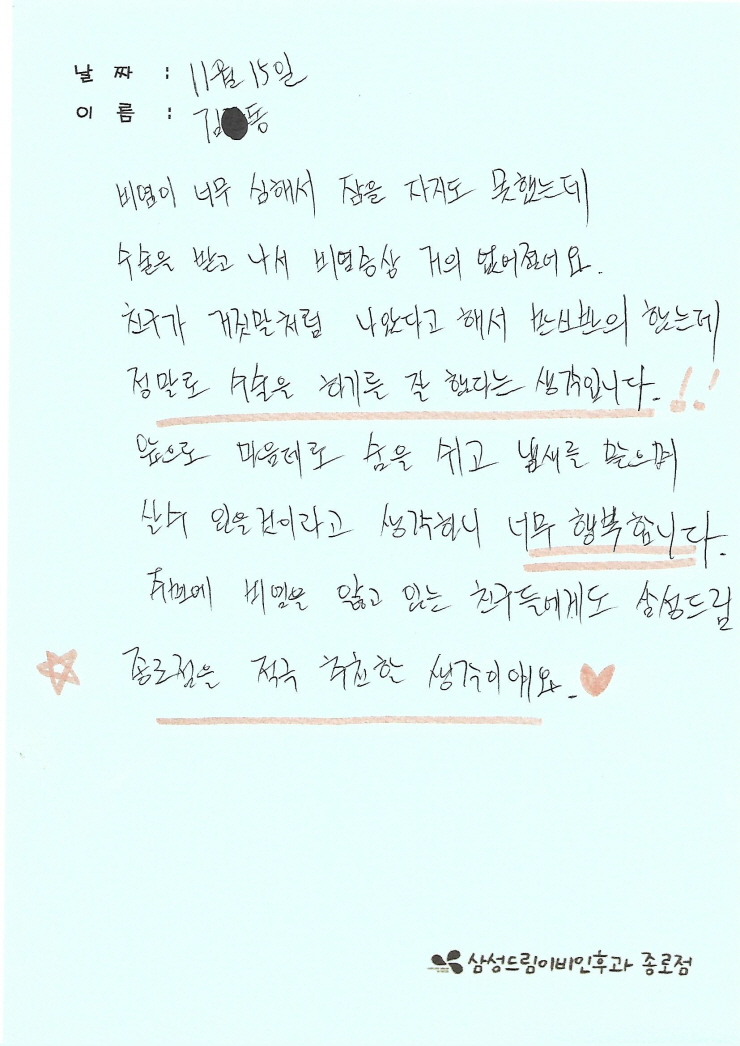 날 짜 : 11월 15일
이 름 : 김 동
비염이 너무 심해서 잠을 자지도 못했는데
수술을 받고 나서 비염증상 거의 없어졌어요.
친구가 거짓말처럼 나았다고 해서 반신반의 했는데
정말로 수술을 하기를 잘 했다는 생각입니다. !!
앞으로 마음데로 숨을 쉬고 냄새를 맡으며
살수 있을것이라고 생각하니 너무 행복합니다.
주변에 비염을 앓고 있는 친구들에게도 삼성드림
종로점을 적극 추천할 생각이에요.
삼성드림이비인후과 종로점